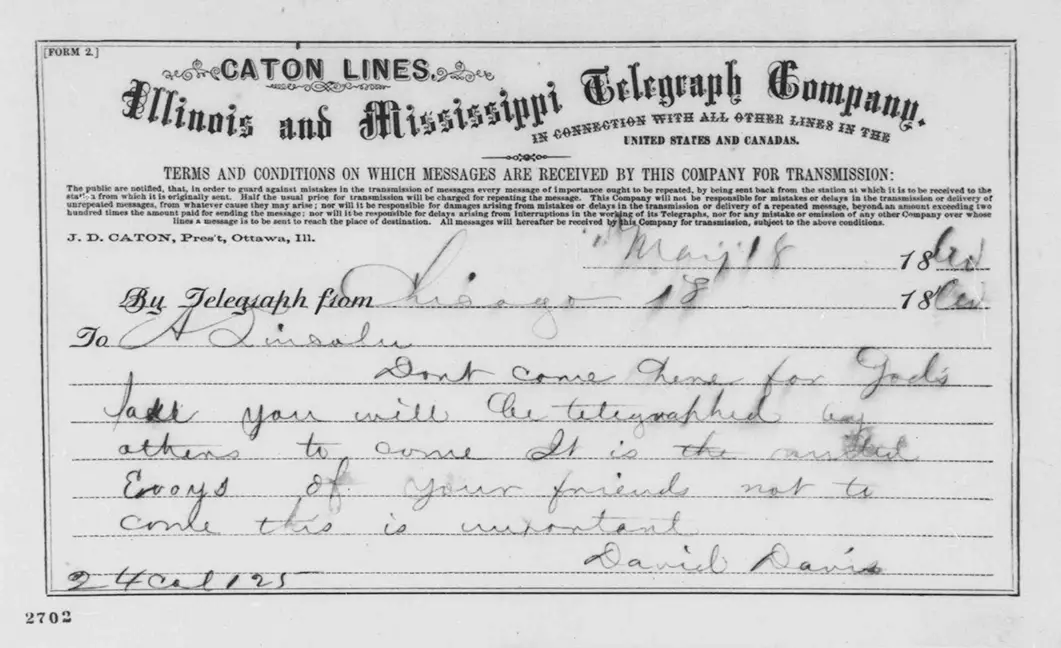 [FORM 2.]
CATON LINES.
Illinois and Mississippi Telegraph Company.
IN CONNECTION WITH ALL OTHER LINES IN THE
UNITED STATES AND CANADAS.
TERMS AND CONDITIONS ON WHICH MESSAGES ARE RECEIVED BY THIS COMPANY FOR TRANSMISSION:
The public are notified, that, in order to guard against mistakes in the transmission of messages every message of importance ought to be repeated, by being sent back from the station at which it is to be received to the
station from which it is originally sent. Half the usual price for transmission will be charged for repeating the message. This Company will not be responsible for mistakes or delays in the transmission or delivery of
unrepeated messages, from whatever cause they may arise; nor will it be responsible for damages arising from mistakes or delays in the transmission or delivery of a repeated message, beyond an amount exceeding two
hundred times the amount paid for sending the message; nor will it be responsible for delays arising from interruptions in the working of its Telegraphs, nor for any mistake or omission of any other Company over whose
lines a message is to be sent to reach the place of destination. All messages will hereafter be received by this Company for transmission, subject to the above conditions.
J. D. CATON, Pres't, Ottawa, Ill.
May 18 1860
By Telegraph from Chicago 18 1860
To A Lincoln
Dont come here for God's
sake you will be telegraphed by
others to come It is the united
of your friends not to
come this is important
David Davis
24 Col 125
2702